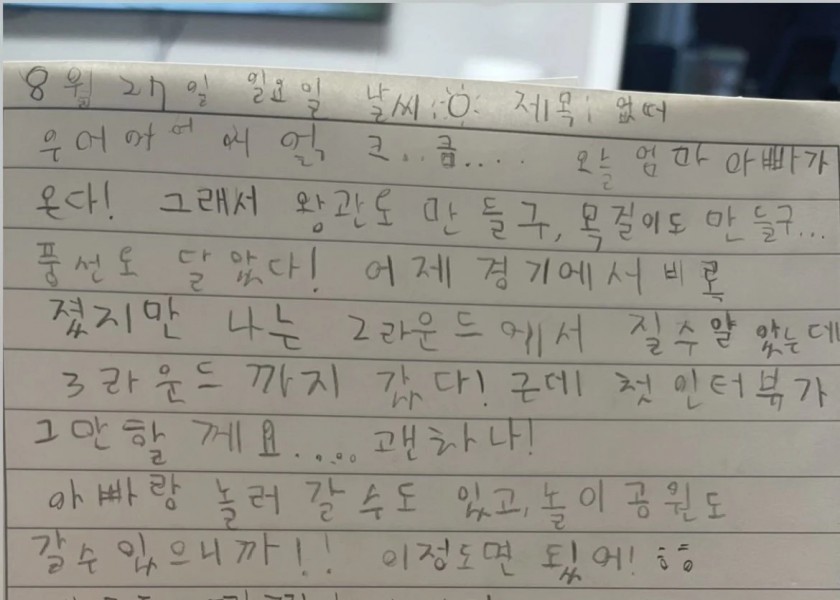 8월 27일 일요일 날씨: 제목: 없떠
우어어어 에 얽 크..큼.... 오늘 엄마 아빠가
온다! 그래서 왕관도 만들구, 목걸이도 만들구...
풍선도 달았다! 어제 경기에서 비록
졌지만 나는 2라운드에서 질수알 았는데
3라운드까지 갔다! 근데 첫 인터뷰가
그만할께요..... 괜차나!
아빠랑 놀러갈수도 있고, 놀이공원도
갈수있으니까!! 이정도면 됬어!